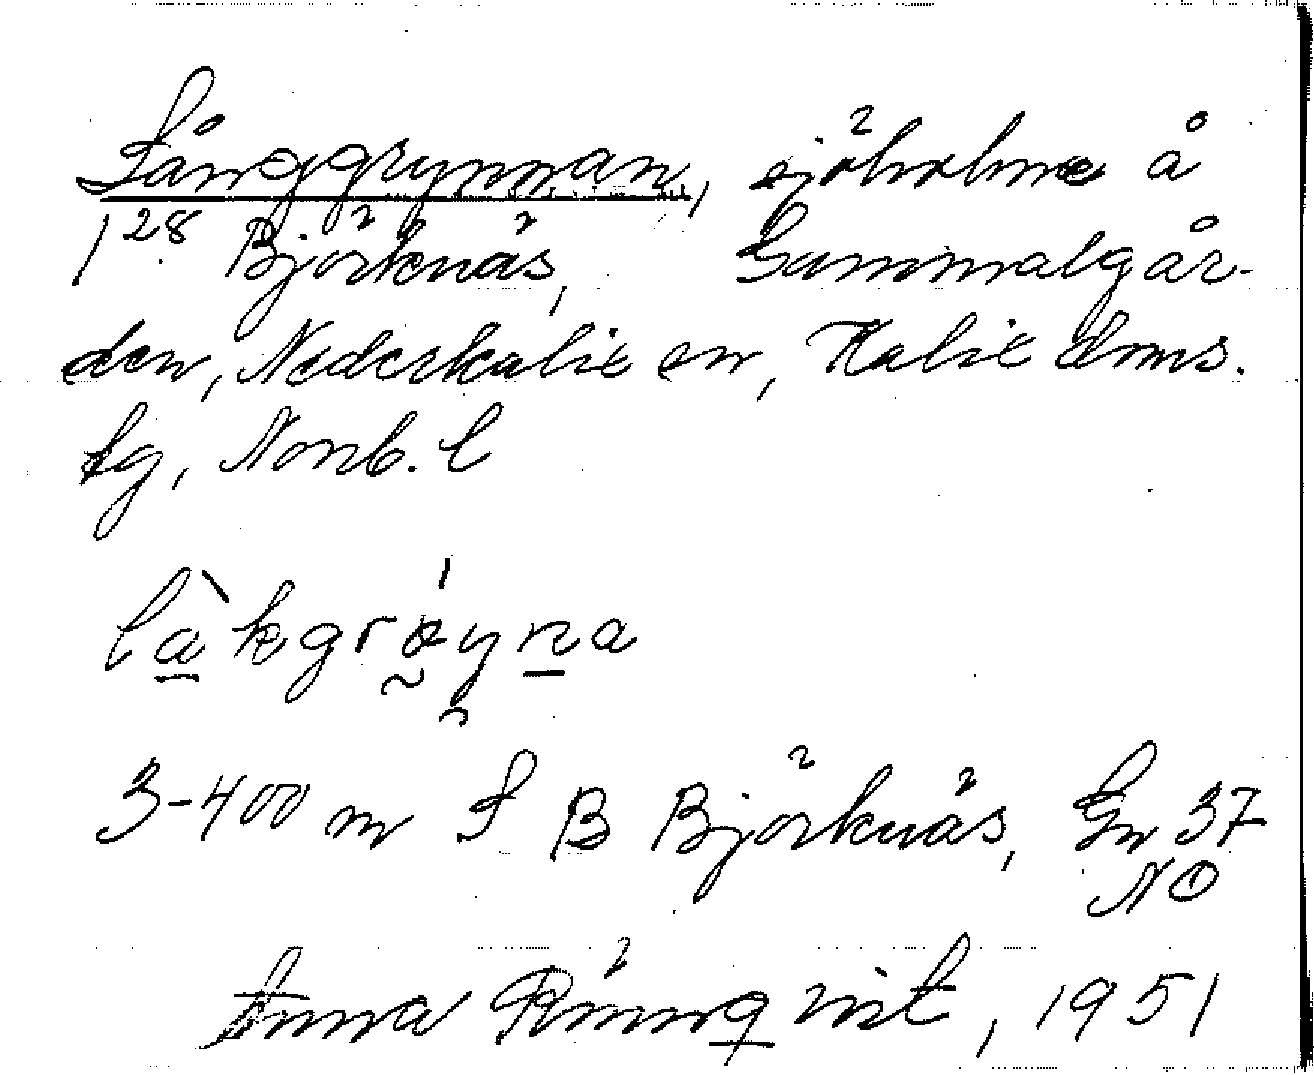 Långgrynnan, sjöholme å
1²⁸ Björknäs, Gammalgår-
den, Nederkalix sn, Kalix doms.
lg, Norrb. l
là̱kgrǿyṉa
3-400 m S B Björknäs, Gn 37
NO
Anna Rönnqvist, 1951